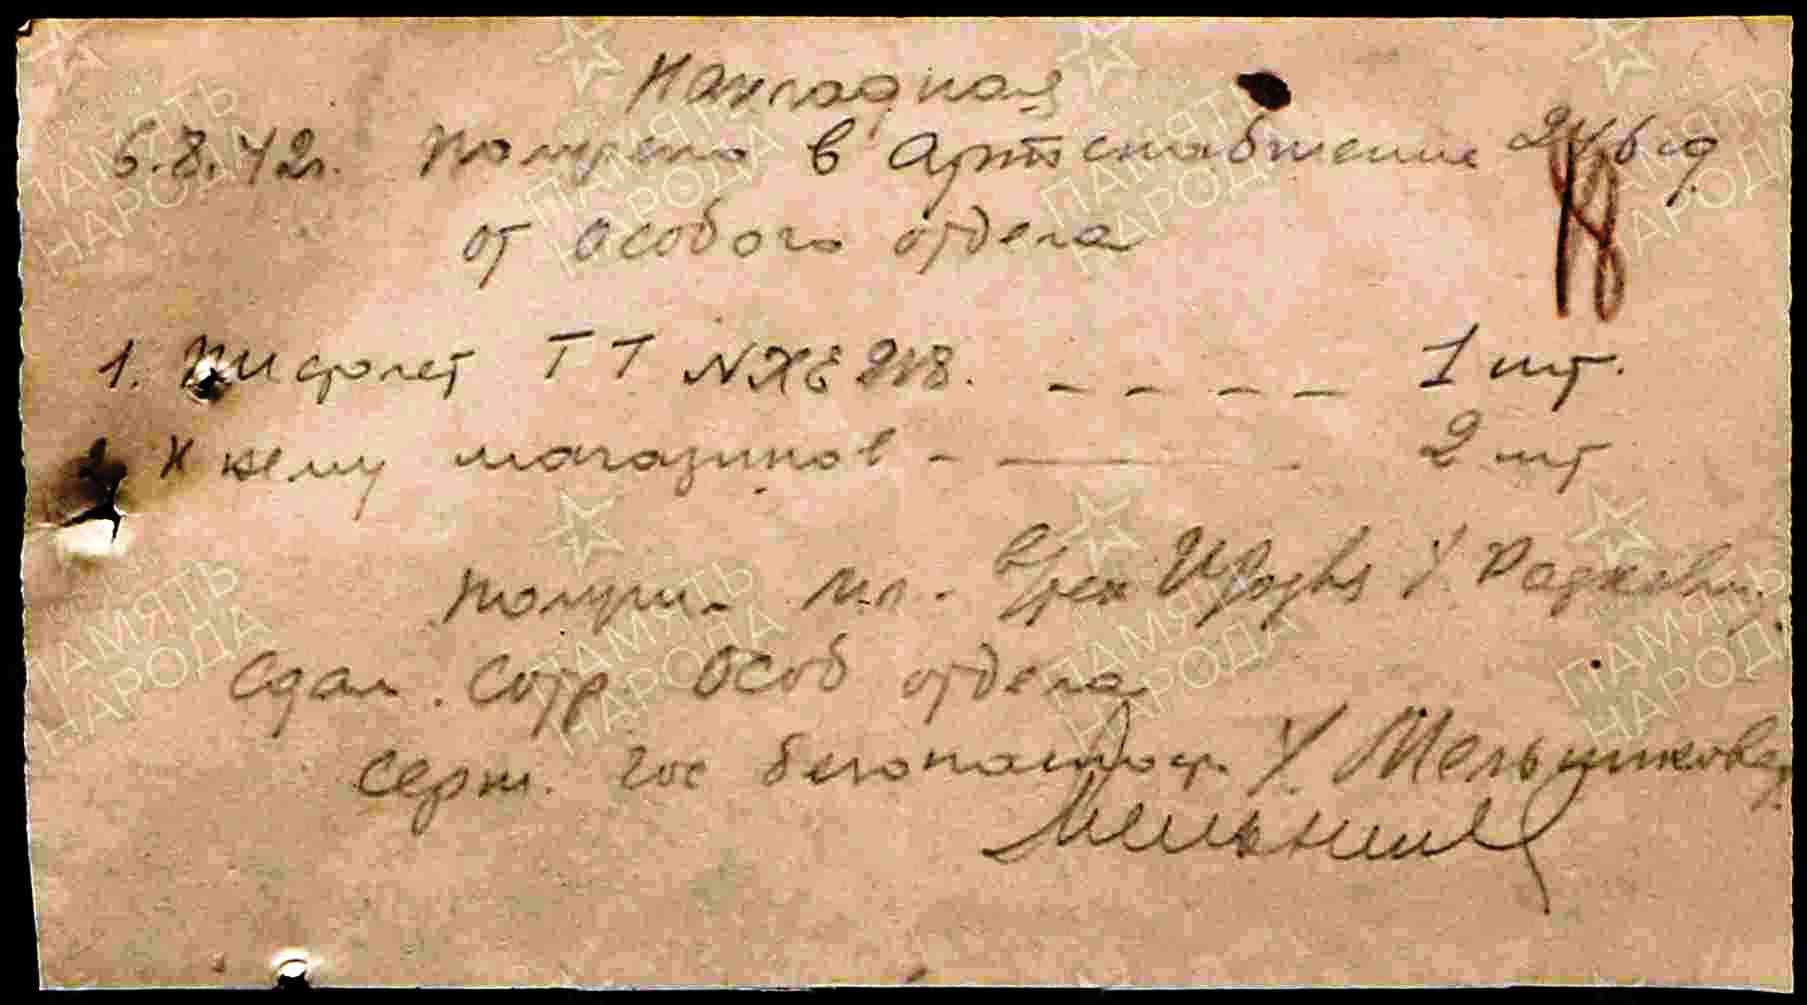 Накладная
5.8.42г. Получено в Артснабжение 246 сд
от Особого отдела
1. Пистолет ТТ № ХЕ 218. – – – – 1 шт.
2. К нему магазинов – — 2 шт
Получил мл.
Сдал. Сотр Особ отдела
Серж. гос безопасност. / Мельников
ПАМЯТЬ НАРОДА